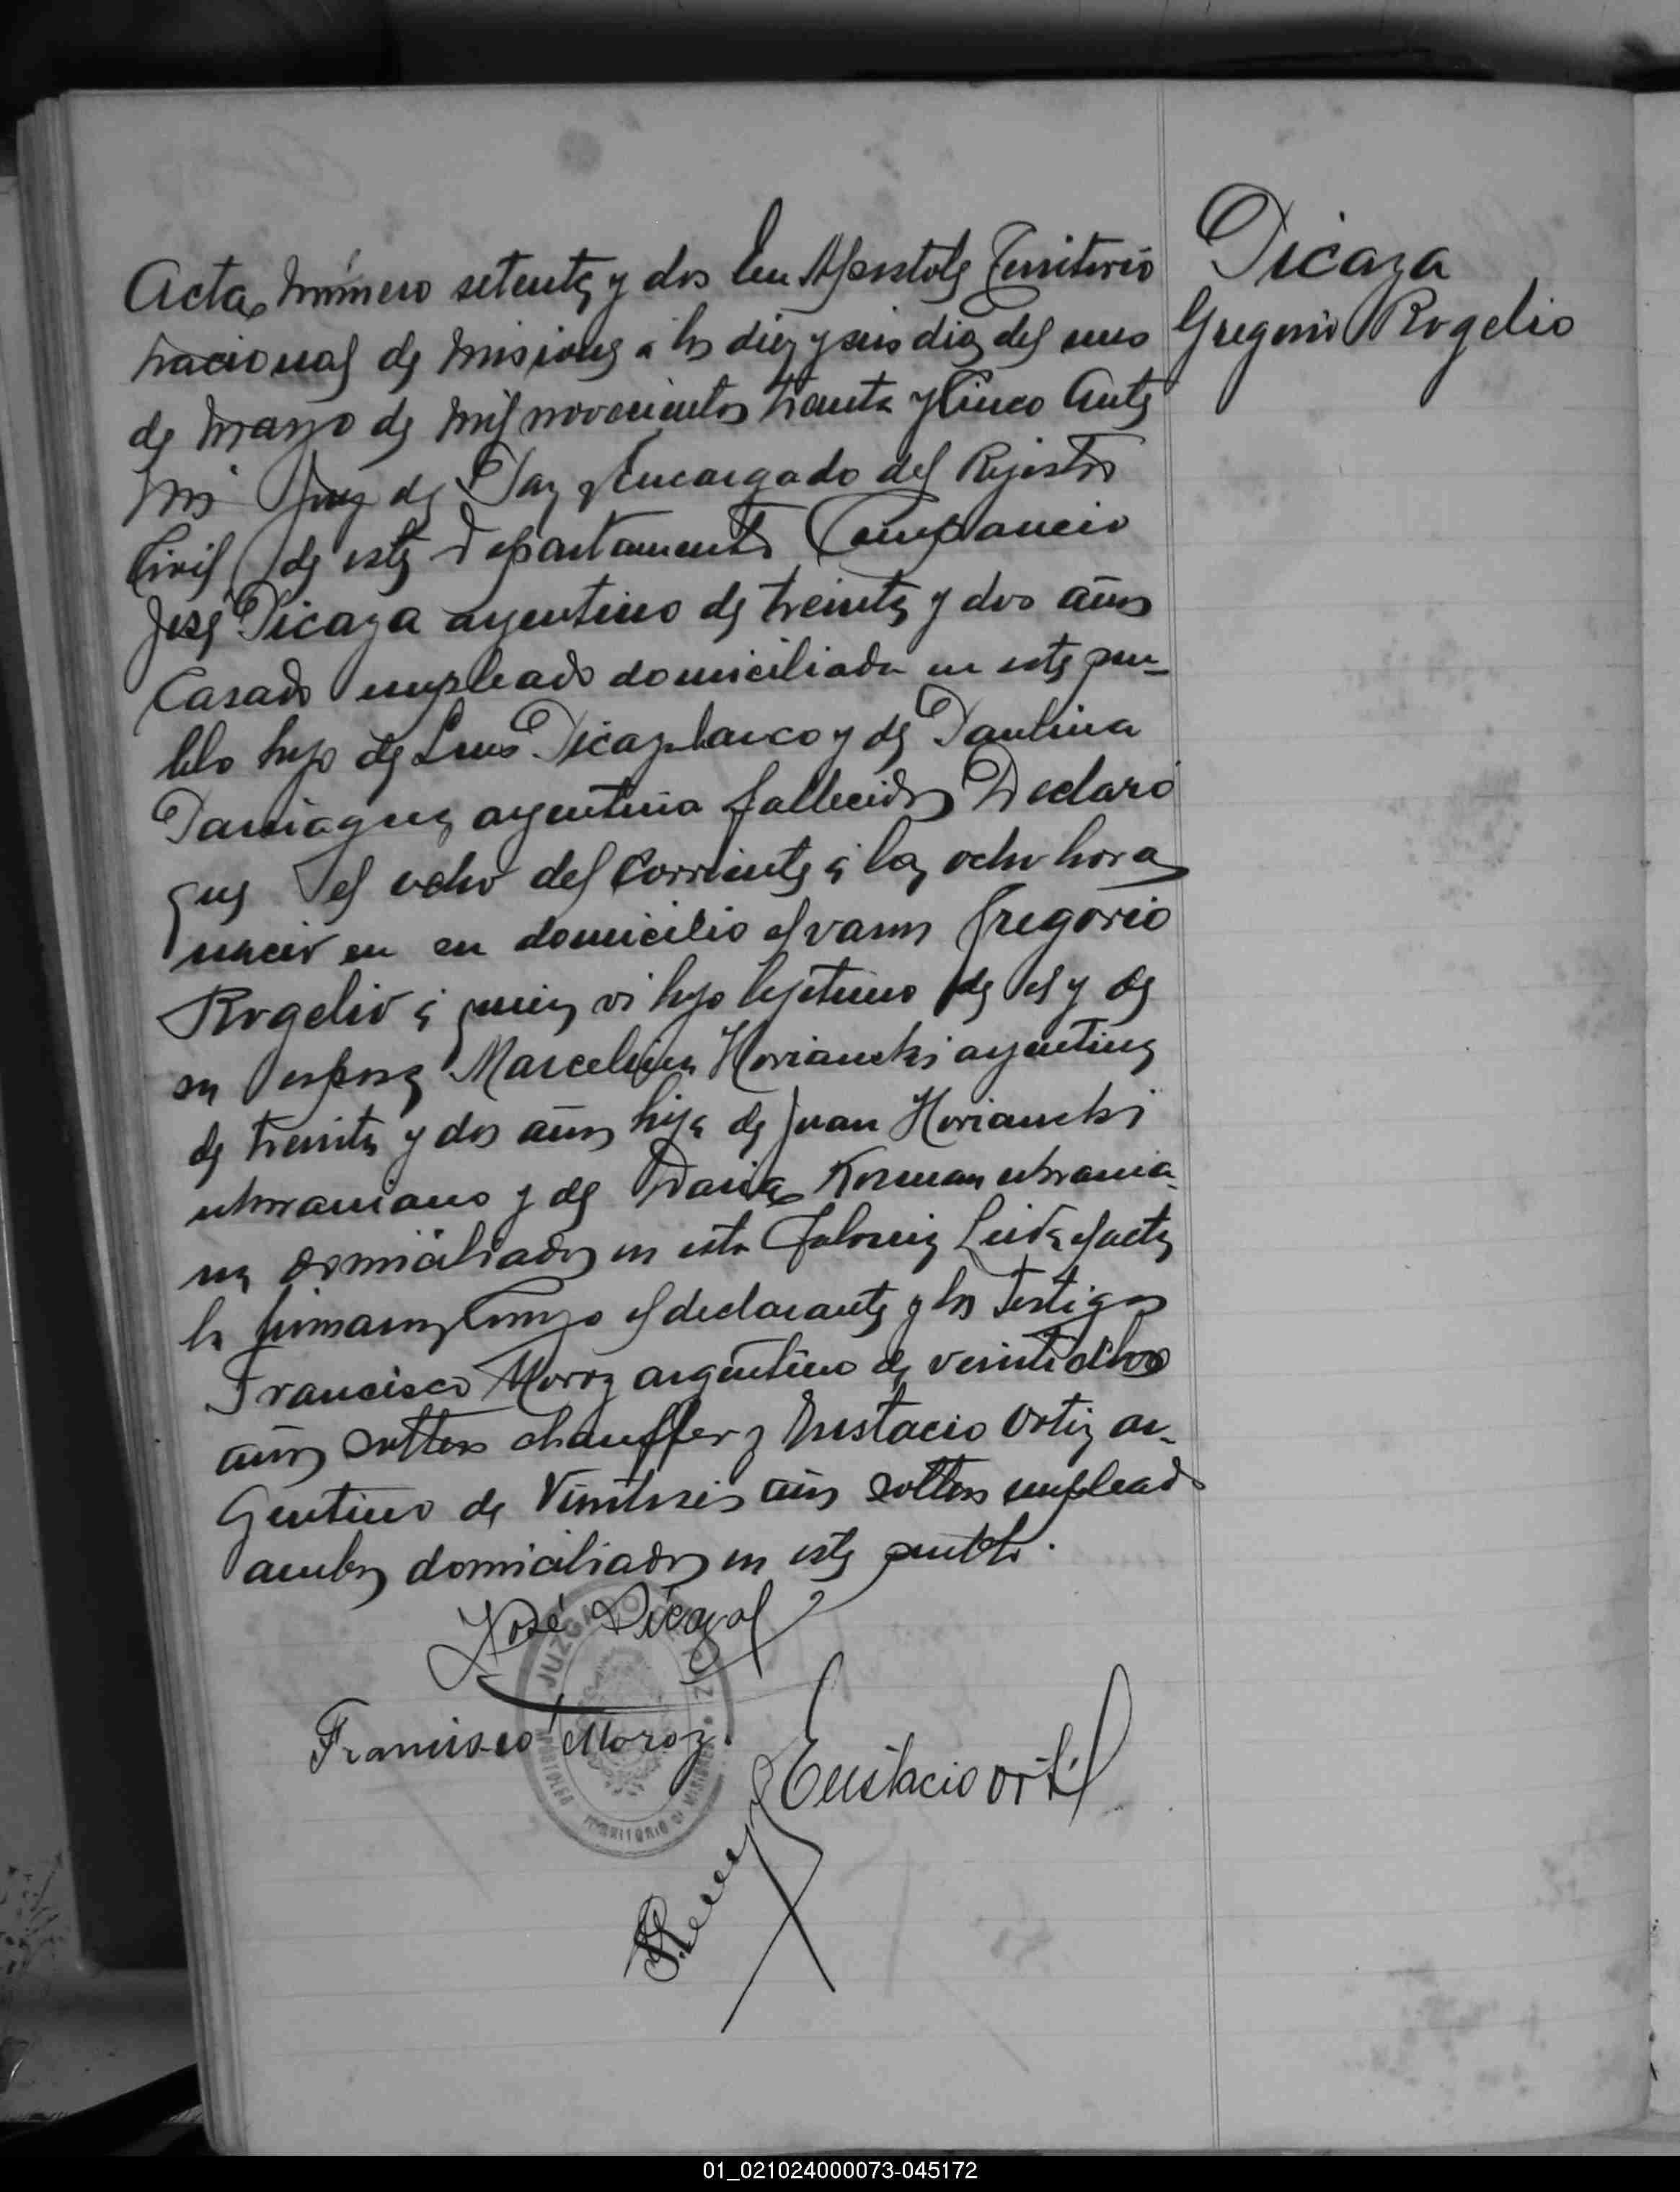 Acta Número setenta y dos En Apostoles Territorio
nacional de Misiones a los diez y seis dias del mes
de Mayo de mil novecientos treinta y Cinco Ante
Mi Juez de Paz y Encargado del Rejistro
Civil de este Departamento Compareció
José Picaza argentino de treinta y dos años
Casado empleado domiciliado en este pue-
blo hijo de Luis Picaza y de Paulina
Paniagua argentina fallecidos Declaró
que el ocho del Corriente á las ocho horas
nació en su domicilio el varon Gregorio
Rogelio á quien vi hijo lejitimo de el y de
su esposa Marcelina Horianski argentina
de treinta y dos años hija de Juan Horianski
ukraniano y de Maria Kosman ukrania-
na domiciliados en esta Colonia Leida el acta
la firmaron Conmigo el declarante y los Testigos
Francisco Moroz argentino de veintiocho
años soltero chauffer y Eustacio Ortiz ar-
gentino de Veintiseis años soltero empleado
ambos domiciliados en este pueblo.
José Picaza
Francisco Moroz
Eustacio Ortiz
JUZGADO DE PAZ
APOSTOLES TERRITORIO DE MISIONES
Picaza
Gregorio Rogelio
01_021024000073-045172